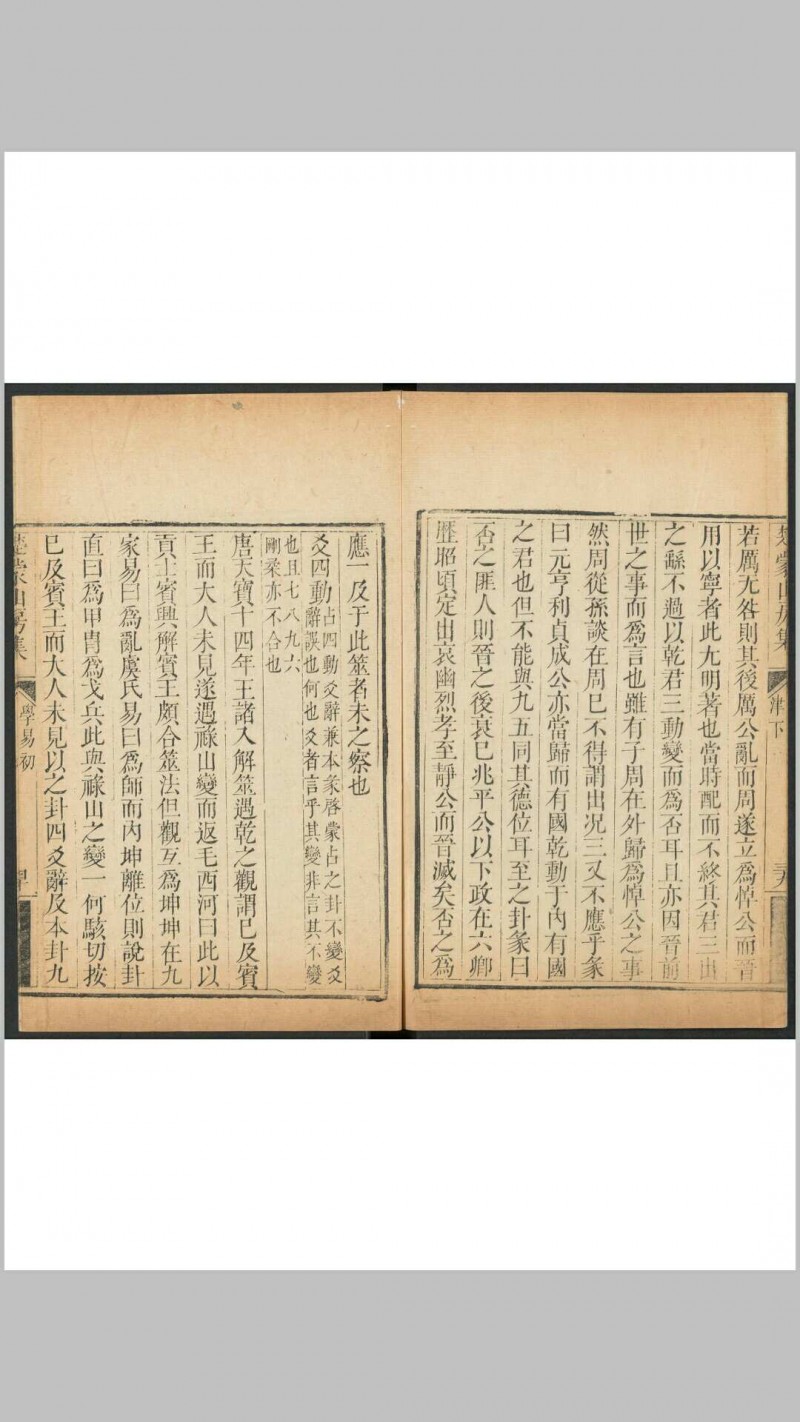 若厲无咎則其後厲公亂而周遂立爲悼公而晉
用以寧者此尤明著也當時配而不終其君三出
之繇不過以乾君三動變而爲否耳且亦因晉前
世之事而爲言也雖有子周在外歸爲悼公之事
然周從孫談在周已不得謂出况三又不應乎彖
曰元亨利貞成公亦當歸而有國乾動于內有國
之君也但不能與九五同其德位耳至之卦彖曰
否之匪人則晉之後衰已兆平公以下政在六卿
歷昭頃定出哀幽烈孝至靜公而晉滅矣否之爲
應一及于此筮者未之察也
爻四動占四動爻辭兼本彖啓蒙占之卦不變爻
辭誤也何也爻者言乎其變非言其不變
也且七八九六
剛柔亦不合也
唐天寶十四年王諸入解筮遇乾之觀謂已及賓
王而大人未見遂遇祿山變而返毛西河曰此以
貢士賓興解賓王頗合筮法但觀互爲坤坤在九
家易曰爲亂虞氏易曰爲師而內坤離位則說卦
直曰爲甲冑爲戈兵此與祿山之變一何駭切按
已及賓王而大人未見以之卦四爻辭及本卦九
楚蒙山房集
學易初